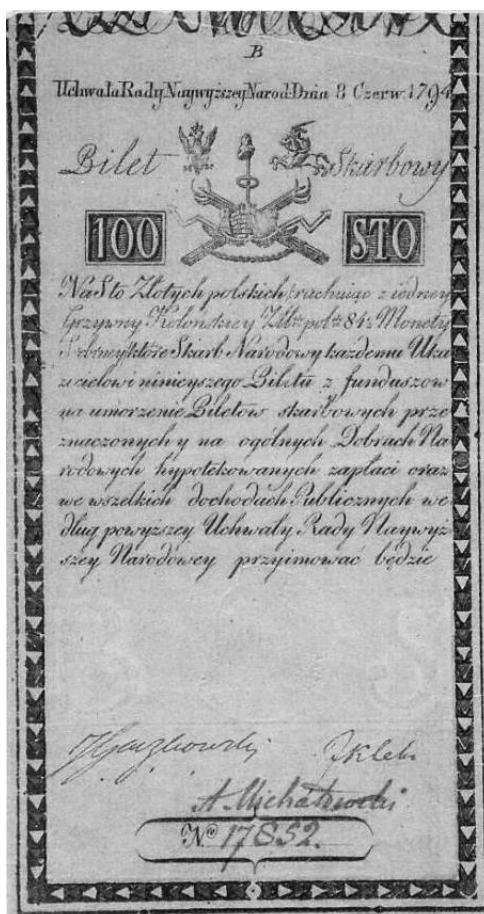 B
Uchwała Rady Naywyższey Narod: Dnia 8 Czerw: 1794
Bilet Skarbowy
100 STO
Na Sto Złotych polskich rachuiąc z iedney
Grzywny Kolońskiey Złłtt pol:tt 84½ Monety
Srebrney które Skarb Narodowy każdemu Uka
zicielowi ninieyszego Biletu z funduszow
na umorzenie Biletow skarbowych prze
znaczonych y na ogólnych Dobrach Na
rodowych hypotekowanych zapłaci oraz
we wszelkich dochodach Publicznych we
dług powyższey Uchwały Rady Naywyż
szey Narodowey przyimować będzie
A Michałowski
No 17852.